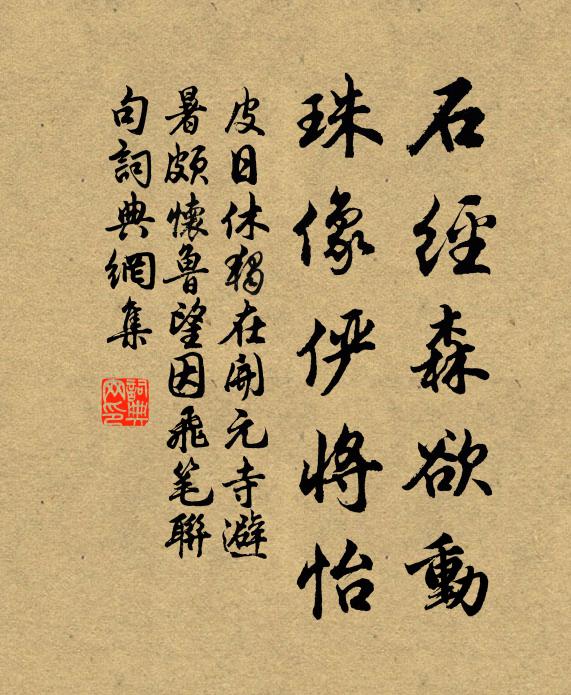 石經森欲動
珠像俨將怡
皮日休獨在開元寺避
暑颇懷魯望因飛笔聯
句詞典網集
詞典
网印